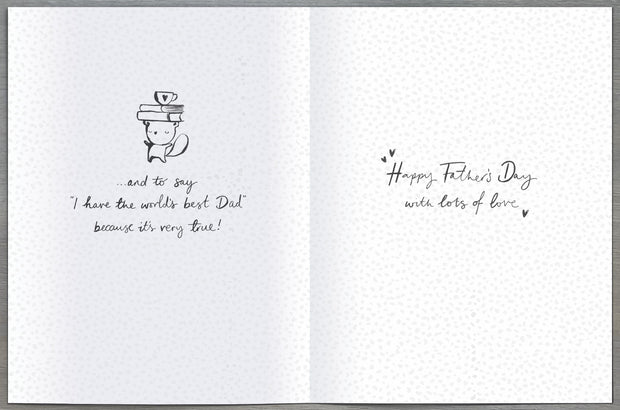 ...and to say
"I have the world's best Dad"
because it's very true!
Happy Father's Day
with lots of love